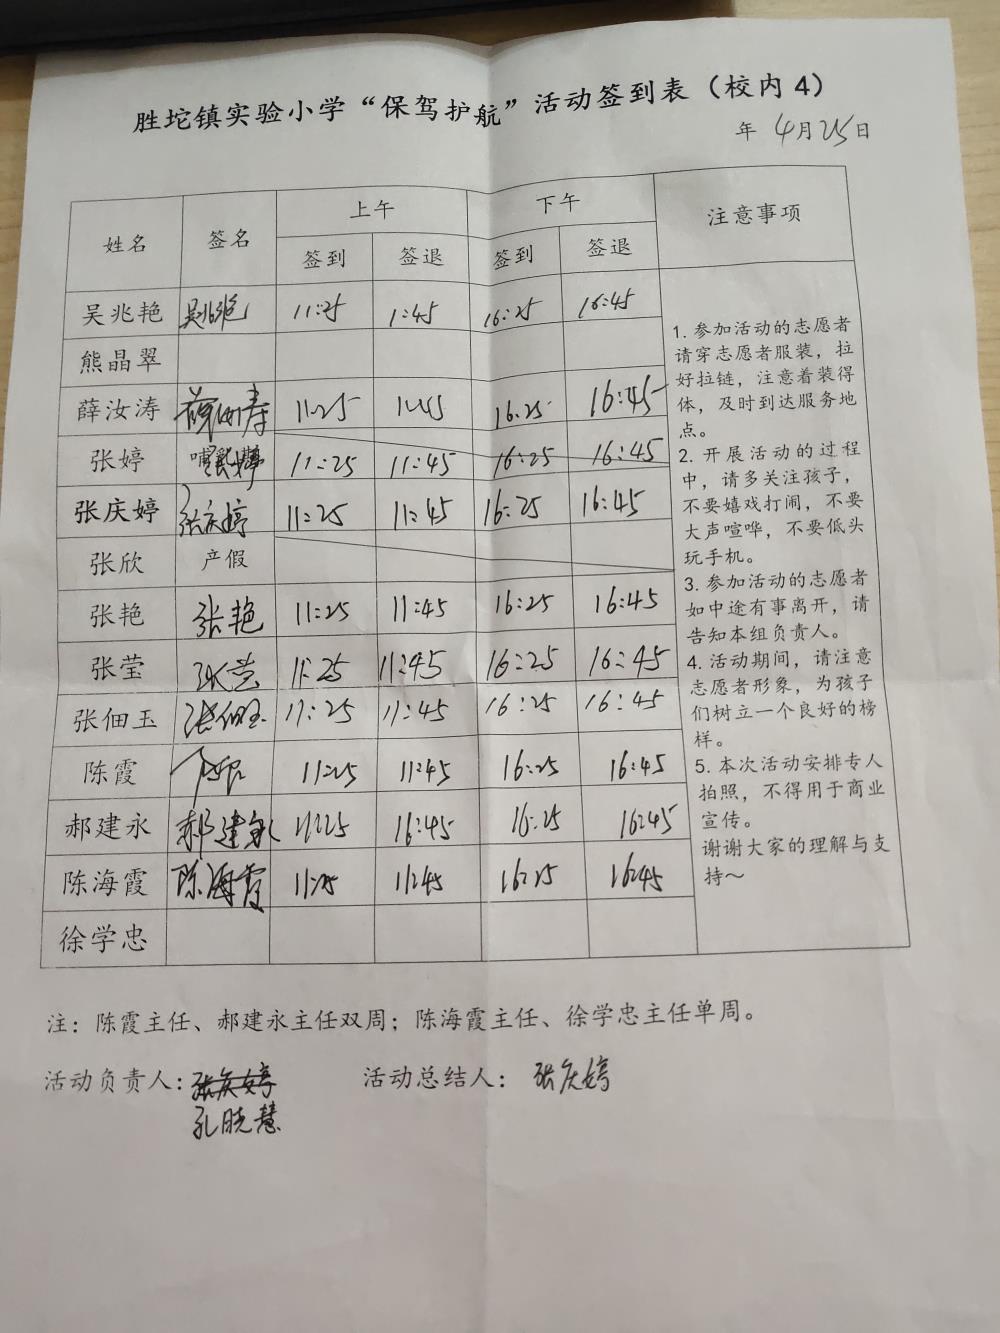 胜坨镇实验小学“保驾护航”活动签到表（校内4）
年 4月25日
姓名 签名 上午 下午 注意事项
签到 签退 签到 签退
吴兆艳 吴兆艳 11:25 1:45 16:25 16:45
熊晶翠
薛汝涛 薛汝涛 11:25 11:45 16:25 16:45
张婷 11:25 11:45 16:25 16:45
张庆婷 张庆婷 11:25 11:45 16:25 16:45
张欣 产假
张艳 张艳 11:25 11:45 16:25 16:45
张莹 张莹 11:25 11:45 16:25 16:45
张佃玉 张佃玉 11:25 11:45 16:25 16:45
陈霞 11:25 11:45 16:25 16:45
郝建永 郝建永 11:25 16:45 16:25 16:45
陈海霞 陈海霞 11:25 11:45 16:25 16:45
徐学忠
1. 参加活动的志愿者
请穿志愿者服装，拉
好拉链，注意着装得
体，及时到达服务地
点。
2. 开展活动的过程
中，请多关注孩子，
不要嬉戏打闹，不要
大声喧哗，不要低头
玩手机。
3. 参加活动的志愿者
如中途有事离开，请
告知本组负责人。
4. 活动期间，请注意
志愿者形象，为孩子
们树立一个良好的榜
样。
5. 本次活动安排专人
拍照，不得用于商业
宣传。
谢谢大家的理解与支
持～
注：陈霞主任、郝建永主任双周；陈海霞主任、徐学忠主任单周。
活动负责人：张庆婷 活动总结人：张庆婷
孔晓慧